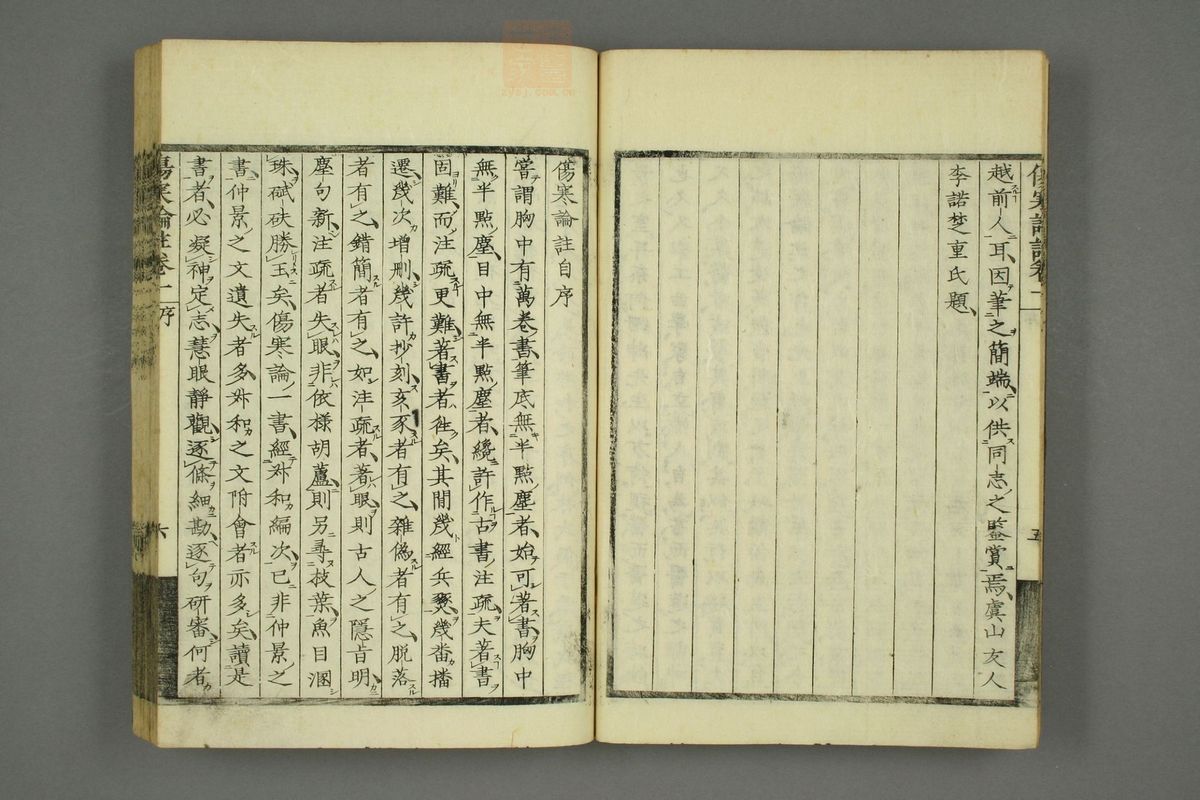 傷寒論註卷一
五
越前人耳因筆之簡端以供同志之鑒賞焉虞山友人
李諾楚重氏題
傷寒論註自序
嘗謂胸中有萬卷書筆底無半點塵者始可著書胸中
無半點塵目中無半點塵者纔許作古書注疏夫著書
固難而注疏更難著書者徃矣其間幾經兵燹幾番播
遷幾次增刪幾許抄刻亥豕者有之雜偽者有之脫落
者有之錯簡者有之如注疏者著眼則古人之隱旨明
塵句新注疏者失眼非依樣胡蘆則另尋枝葉魚目溷
珠碔砆勝玉矣傷寒論一書經叔和編次已非仲景之
書仲景之文遺失者多叔和之文附會者亦多矣讀是
書者必凝神定志慧眼靜觀逐條細勘逐句研審何者
傷寒論註卷一 序
六
zysj.com.cn